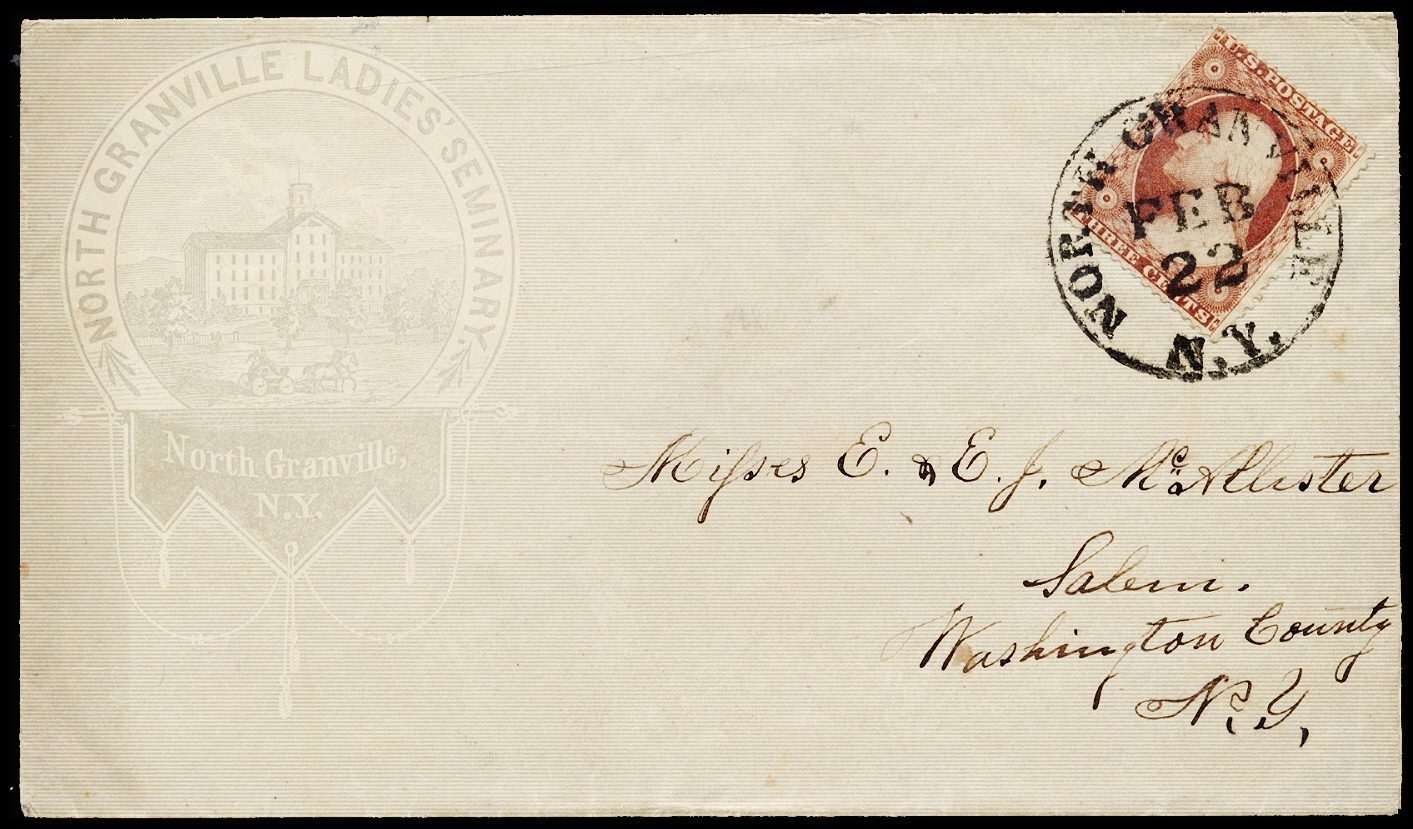 NORTH GRANVILLE LADIES' SEMINARY.
North Granville,
N.Y.
U.S. POSTAGE
THREE CENTS
NORTH GRANVILLE
FEB
22
N.Y.
Misses E. & E. J. McAllister
Salem.
Washington County
N. Y,